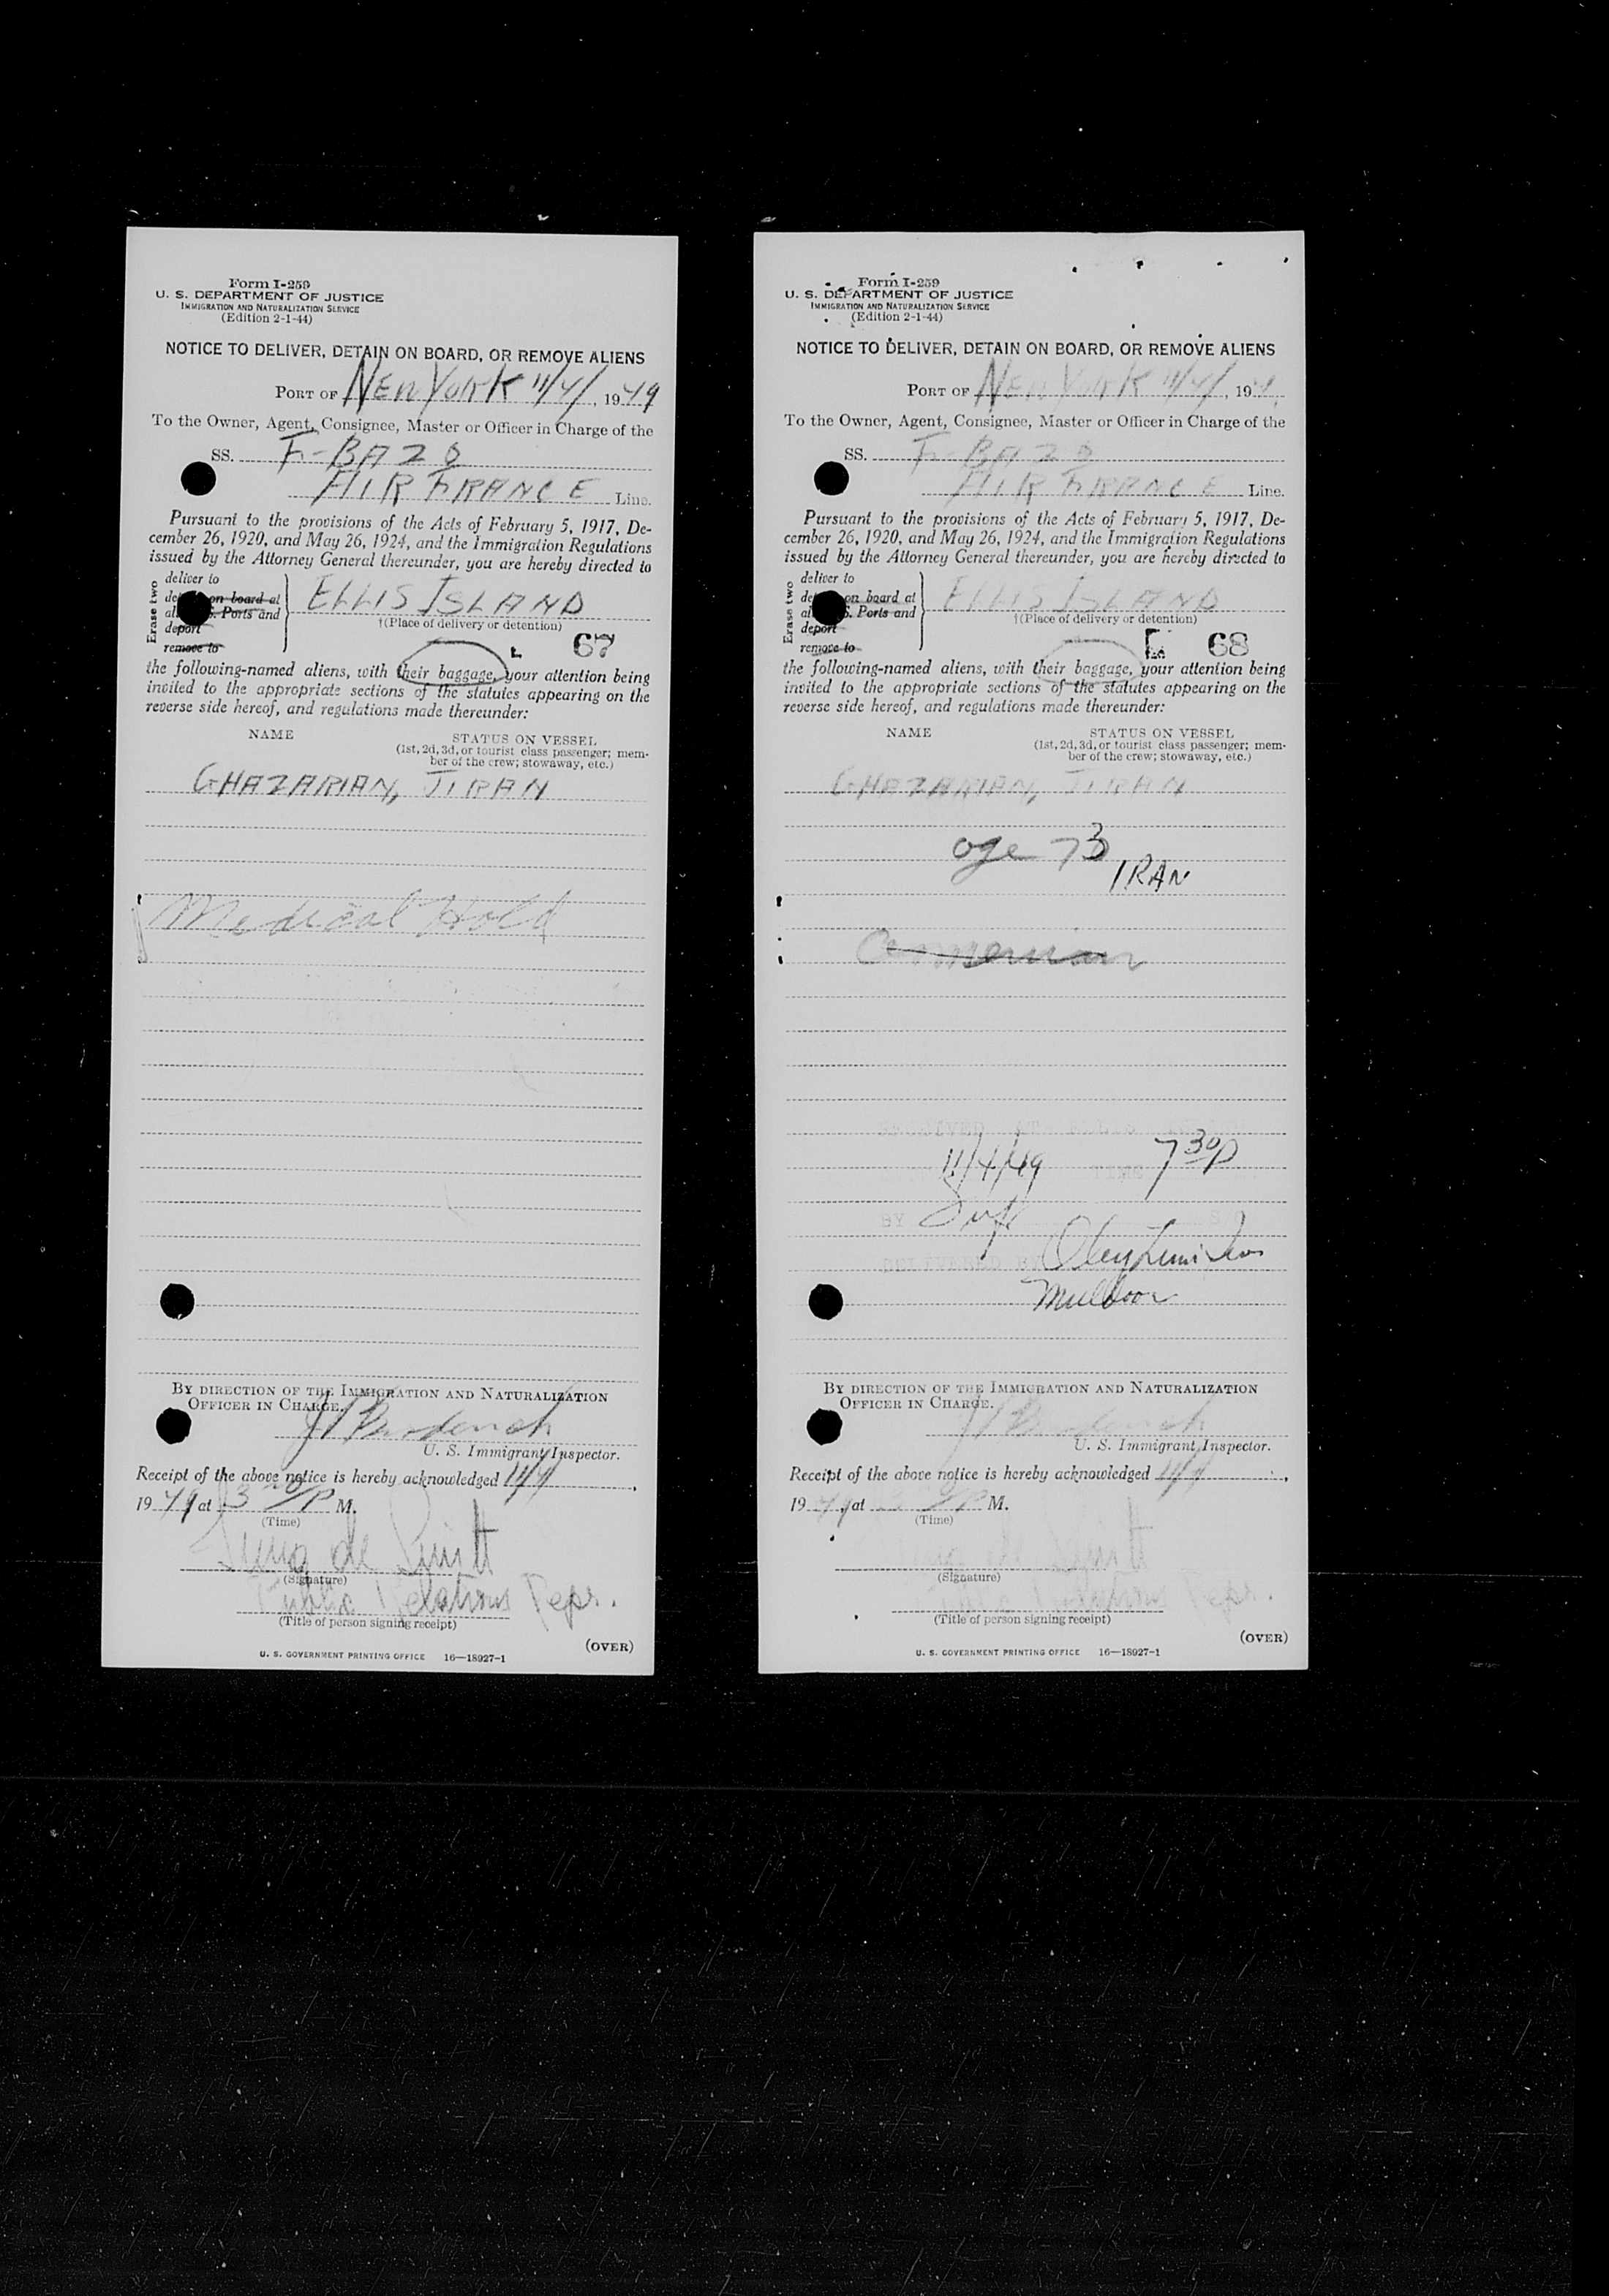 Form I-259
U. S. DEPARTMENT OF JUSTICE
IMMIGRATION AND NATURALIZATION SERVICE
(Edition 2-1-44)
NOTICE TO DELIVER, DETAIN ON BOARD, OR REMOVE ALIENS
PORT OF NEW YORK 11/4/, 1949
To the Owner, Agent, Consignee, Master or Officer in Charge of the
SS. F-BAZO
AIR FRANCE Line.
Pursuant to the provisions of the Acts of February 5, 1917, De-
cember 26, 1920, and May 26, 1924, and the Immigration Regulations
issued by the Attorney General thereunder, you are hereby directed to
Erase two
deliver to
on board at
Ports and
deport
remove to
ELLIS ISLAND
†(Place of delivery or detention)
L 67
the following-named aliens, with their baggage, your attention being
invited to the appropriate sections of the statutes appearing on the
reverse side hereof, and regulations made thereunder:
NAME STATUS ON VESSEL
(1st, 2d, 3d, or tourist class passenger; mem-
ber of the crew; stowaway, etc.)
GHAZARIAN, TIRAN
Medical Hold
BY DIRECTION OF THE IMMIGRATION AND NATURALIZATION
OFFICER IN CHARGE.
U. S. Immigrant Inspector.
Receipt of the above notice is hereby acknowledged 11/4/,
1949 at 3 P M.
(Time)
(Signature)
Public Relations Repr.
(Title of person signing receipt)
(OVER)
U. S. GOVERNMENT PRINTING OFFICE 16—18927-1
Form I-259
U. S. DEPARTMENT OF JUSTICE
IMMIGRATION AND NATURALIZATION SERVICE
(Edition 2-1-44)
NOTICE TO DELIVER, DETAIN ON BOARD, OR REMOVE ALIENS
PORT OF NEW YORK 11/4/, 194
To the Owner, Agent, Consignee, Master or Officer in Charge of the
SS. F-BAZO
AIR FRANCE Line.
Pursuant to the provisions of the Acts of February 5, 1917, De-
cember 26, 1920, and May 26, 1924, and the Immigration Regulations
issued by the Attorney General thereunder, you are hereby directed to
Erase two
deliver to
on board at
Ports and
deport
remove to
ELLIS ISLAND
†(Place of delivery or detention)
68
the following-named aliens, with their baggage, your attention being
invited to the appropriate sections of the statutes appearing on the
reverse side hereof, and regulations made thereunder:
NAME STATUS ON VESSEL
(1st, 2d, 3d, or tourist class passenger; mem-
ber of the crew; stowaway, etc.)
GHAZARIAN, TIRAN
age 73
IRAN
Armenian
11/4/49 TIME 7 30p
BY
DELIVERED BY
Muldoon
BY DIRECTION OF THE IMMIGRATION AND NATURALIZATION
OFFICER IN CHARGE.
U. S. Immigrant Inspector.
Receipt of the above notice is hereby acknowledged 11/4/,
1949 at 3 P M.
(Time)
(Signature)
Public Relations Repr.
(Title of person signing receipt)
(OVER)
U. S. GOVERNMENT PRINTING OFFICE 16—18927-1